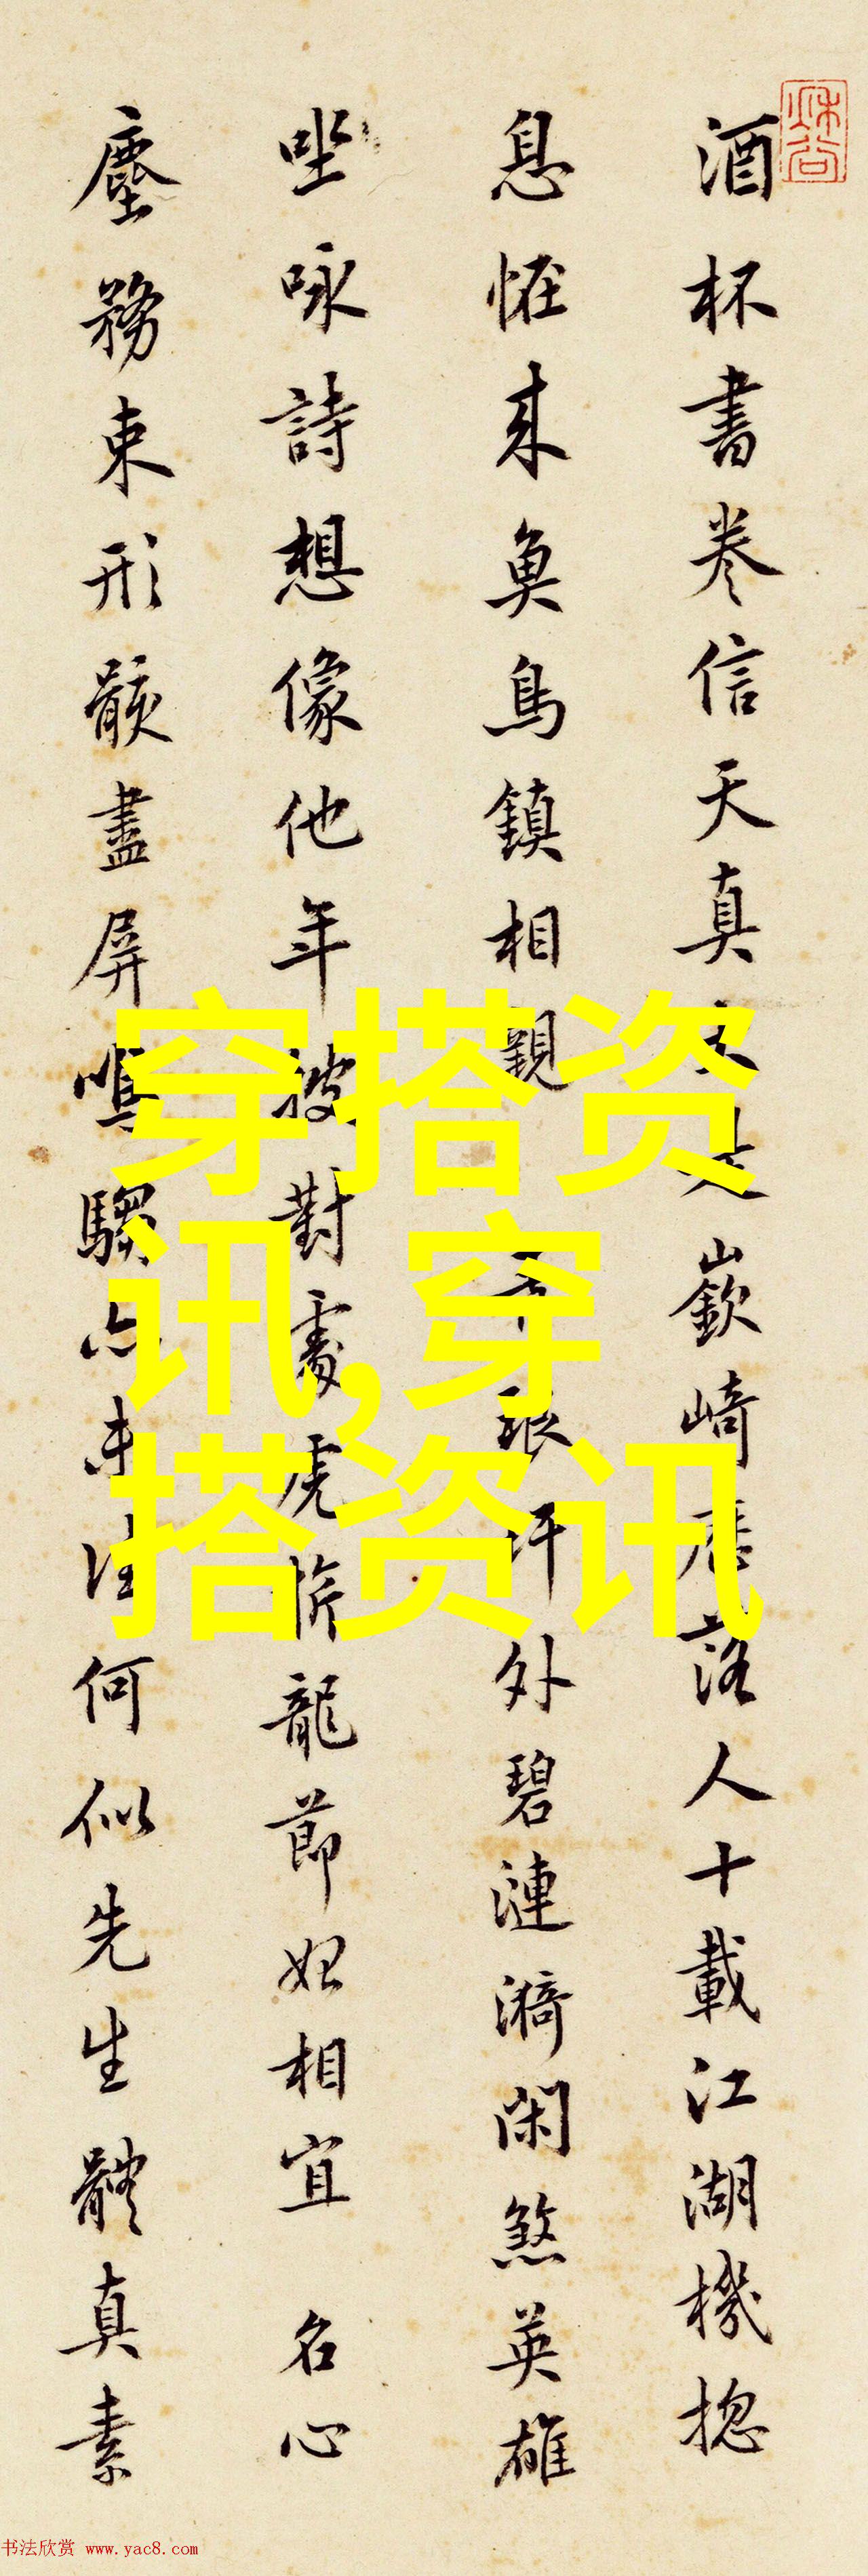 酒杯書卷信天真
嶔崎
落人十載江湖機揔
息恠來魚鳥鎮相親
外碧漣漪閑煞英雄
坐咏詩想像他年被對處虎
龍節妃相宜 名心
塵務束形骸盡屏
何似先生體真素
穿搭资
讯,穿
搭资讯
书法欣赏 www.yac8.com